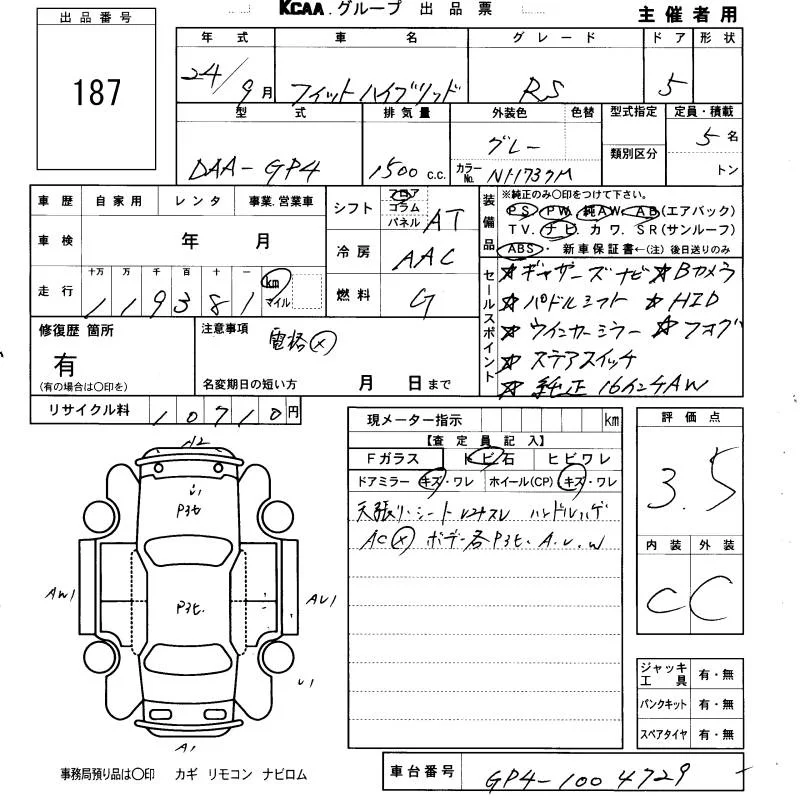 KCAA. グループ 出品票
主催者用
出品番号
187
年式 車名 グレード ドア 形状
24/9月 フィットハイブリッド RS 5
型式 排気量 外装色 色替 型式指定 定員・積載
DAA-GP4 1500 c.c. グレー カラーNo. NH737M 類別区分 5名
トン
車歴 自家用 レンタ 事業.営業車
車検 年 月
走行 十万 万 千 百 十 一
119381 km マイル
シフト フロア コラム パネル AT
冷房 AAC
燃料 G
装備品
※純正のみ○印をつけて下さい。
PS PW 純AW AB(エアバック)
TV. ナビ カワ. SR(サンルーフ)
ABS・ 新車保証書←(注) 後日送りのみ
セールスポイント
☆ギャザーズナビ ☆Bカメラ
☆パドルシフト ☆HID
☆ウインカーミラー ☆フォグ
☆ステアスイッチ
☆純正16インチAW
修復歴 箇所
有
(有の場合は○印を)
注意事項
電格(×)
名変期日の短い方 月 日まで
リサイクル料 10710円
現メーター指示 km
【査定員記入】
Fガラス トビ石 ヒビワレ
ドアミラー キズ・ワレ ホイール(CP) キズ・ワレ
天張り・シート ハンドルハゲ
AC(×) ボデー各Pヨゴ. A.U.W
評価点
3.5
内装 外装
C C
A2
U1
Pヨゴ
Pヨゴ.
AW1
AU1
U1
A1
ジャッキ工具 有・無
パンクキット 有・無
スペアタイヤ 有・無
事務局預り品は○印 カギ リモコン ナビロム
車台番号 GP4-1004729